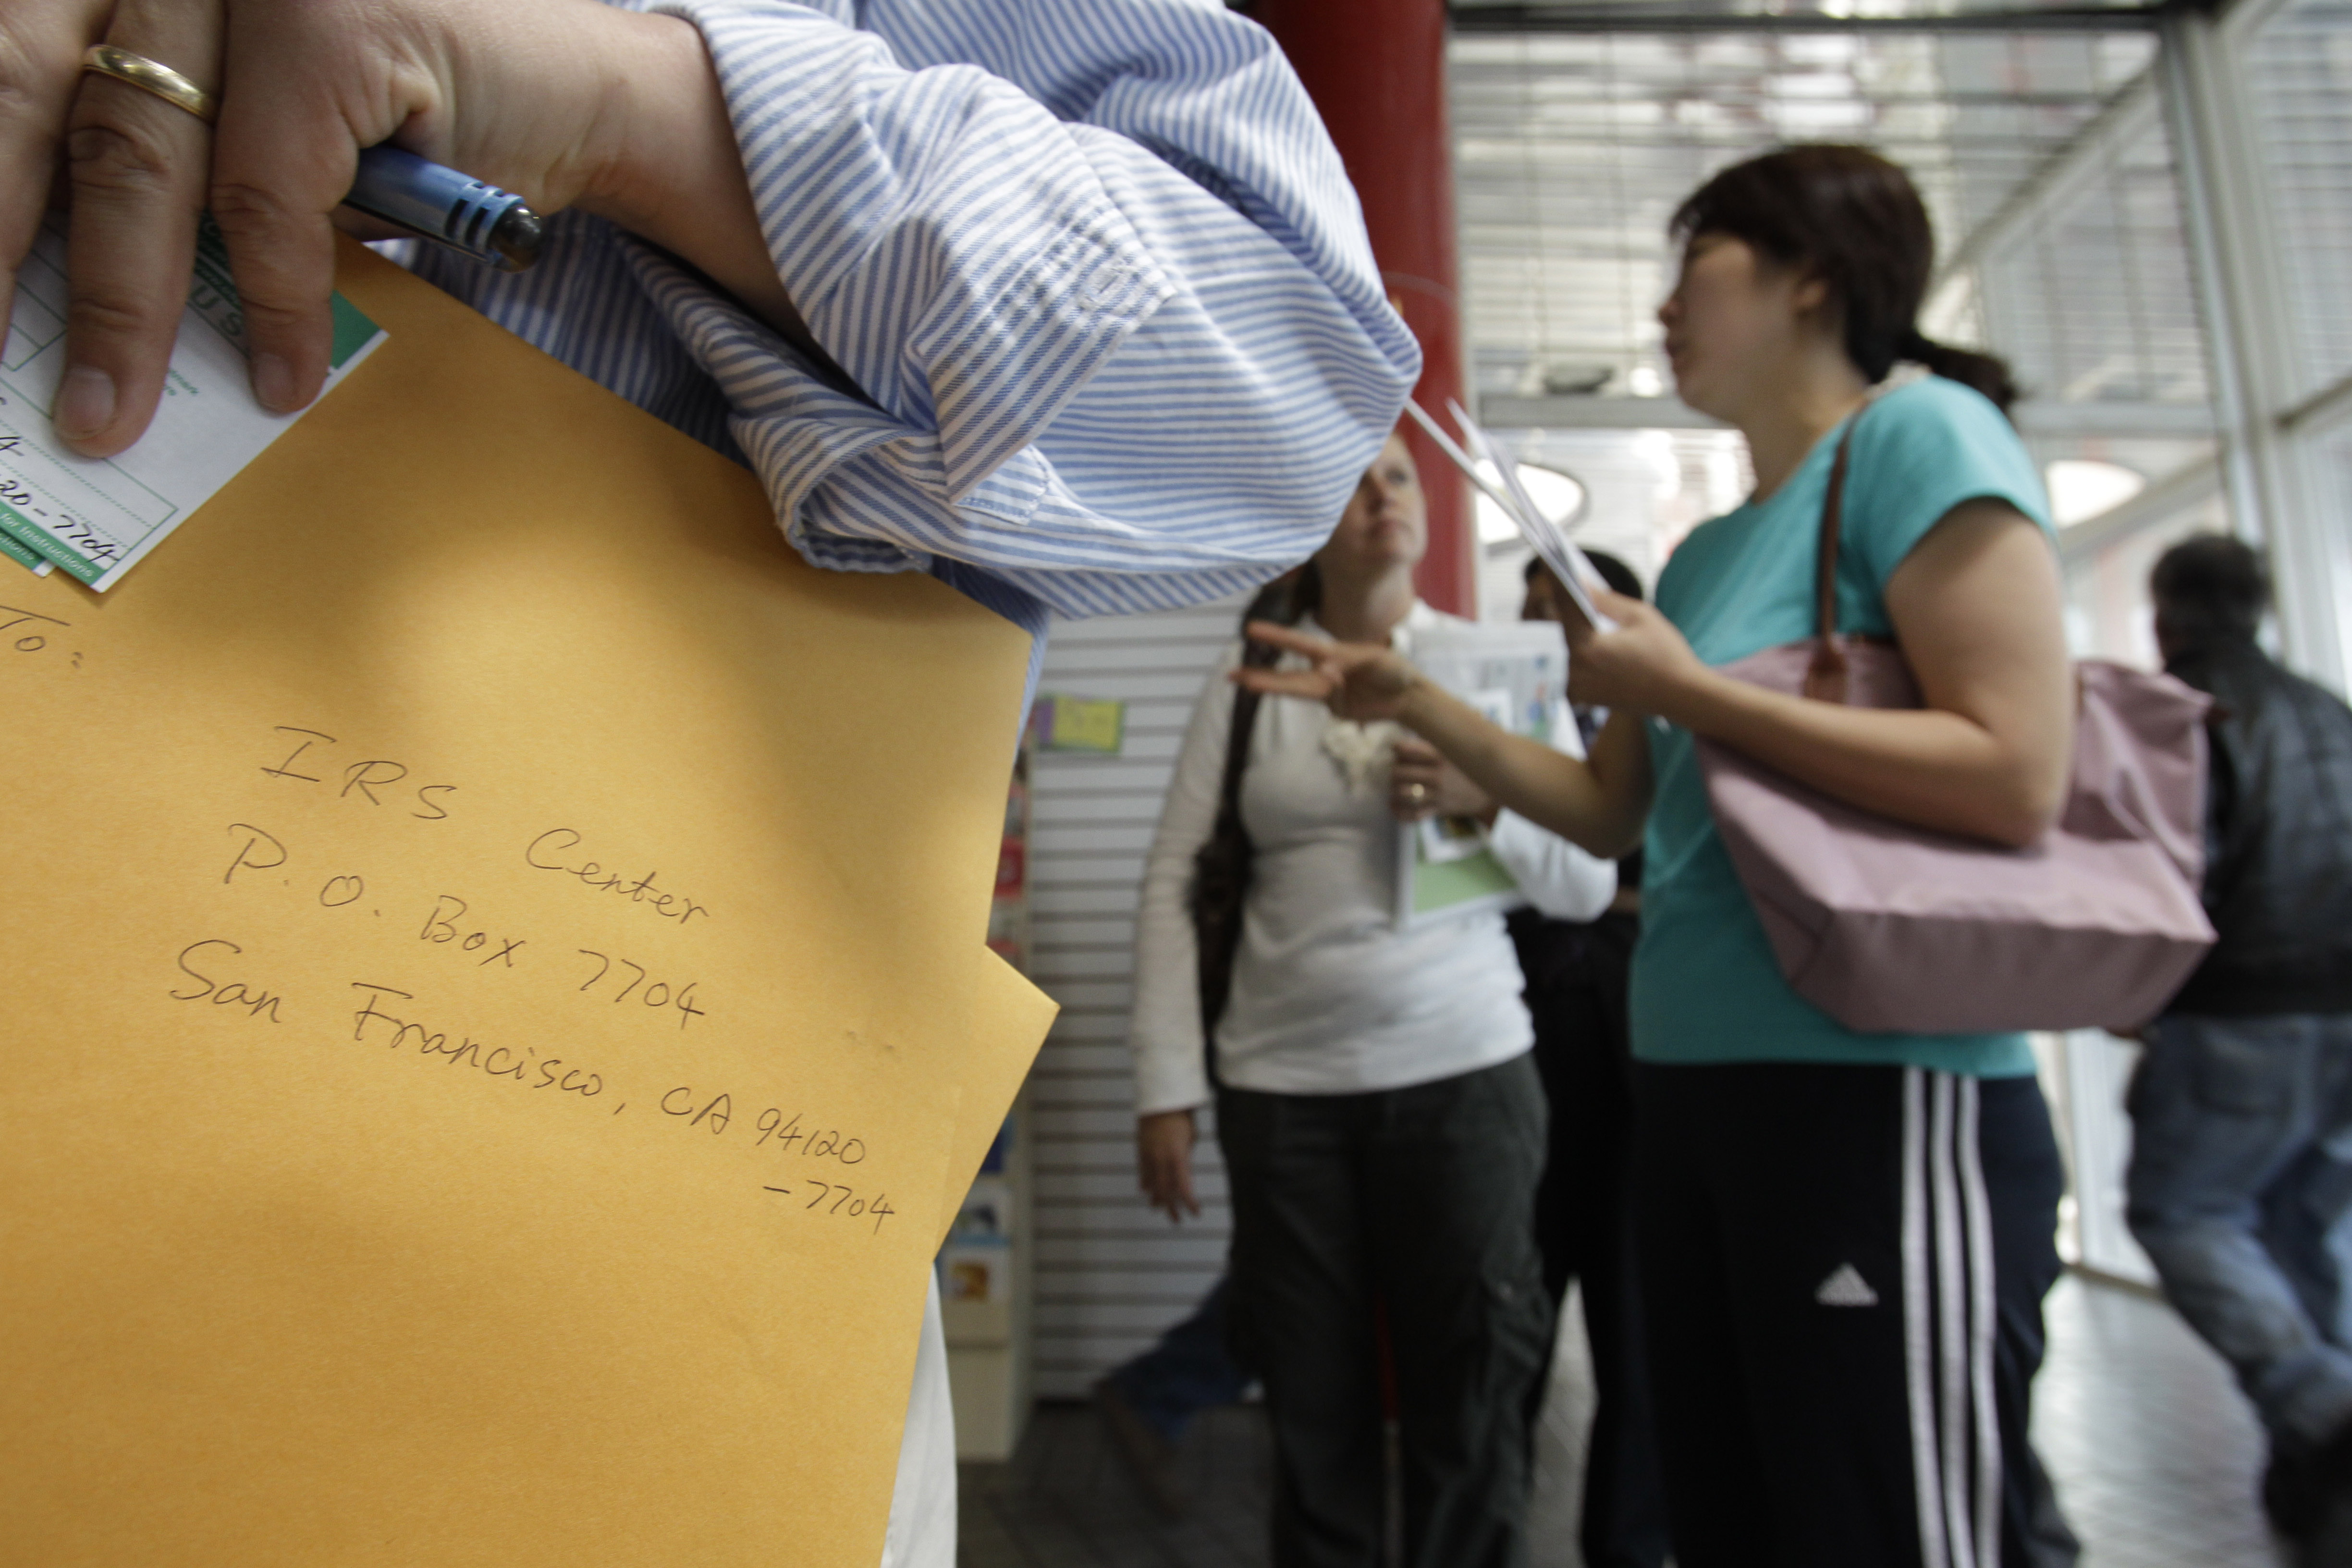 U S
4
20-7704
for Instructions
To:
IRS Center
P.O. Box 7704
San Francisco, CA 94120
-7704